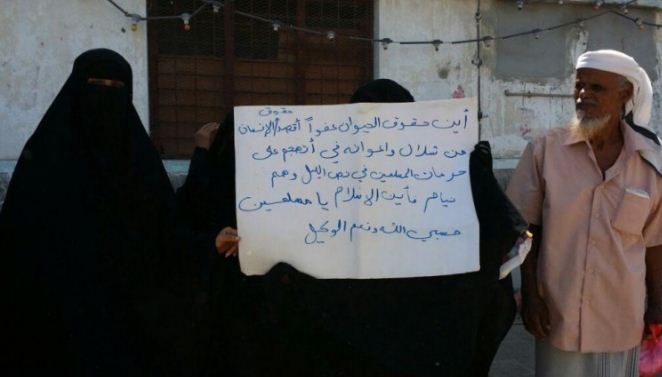 حقوق
أين حقوق الحيوان عفواً أقصد/الإنسان
من شلال واعوانه في أتهجم على
حرمات المسلمين في نص اليل وهم
نيام فأين الاسلام يا مسلمين
حسبي الله ونعم الوكيل